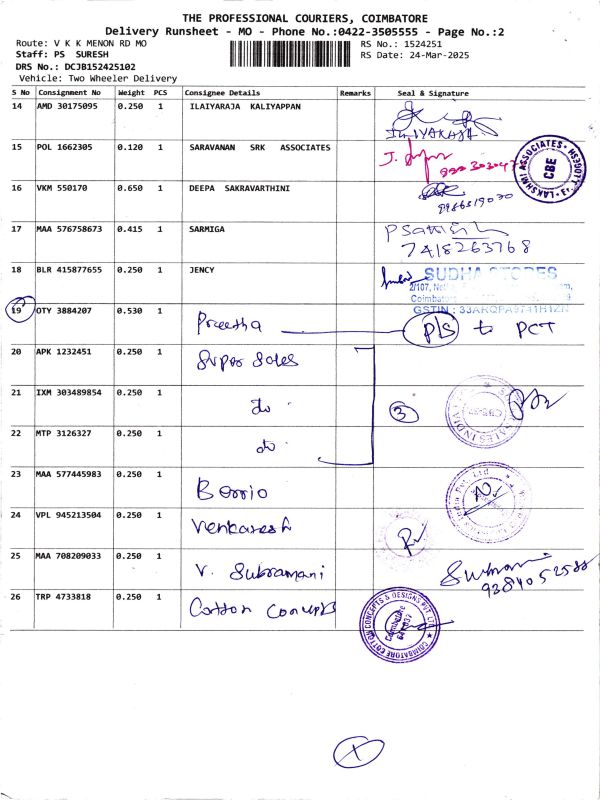 THE PROFESSIONAL COURIERS, COIMBATORE
Delivery Runsheet - MO - Phone No.:0422-3505555 - Page No.:2
Route: V K K MENON RD MO
RS No.: 1524251
Staff: PS SURESH
RS Date: 24-Mar-2025
DRS No.: DCJB152425102
Vehicle: Two Wheeler Delivery
S No Consignment No Weight PCS Consignee Details Remarks Seal & Signature
14 AMD 30175095 0.250 1 ILAIYARAJA KALIYAPPAN
15 POL 1662305 0.120 1 SARAVANAN SRK ASSOCIATES
LAKSHMI ASSOCIATES
CBE
16 VKM 550170 0.650 1 DEEPA SAKRAVARTHINI
17 MAA 576758673 0.415 1 SARMIGA
7418263768
18 BLR 415877655 0.250 1 JENCY
SUDHA STORES
2/107,
Coimbatore
GSTIN : 33ARQPA9741H1ZN
19 OTY 3884207 0.530 1 Preetha pls to PCT
20 APK 1232451 0.250 1 Super Sales
21 IXM 303489854 0.250 1 do 3
22 MTP 3126327 0.250 1 do
23 MAA 577445983 0.250 1 Berrio
24 VPL 945213504 0.250 1 Venkatesh
25 MAA 708209033 0.250 1 V. Subramani
26 TRP 4733818 0.250 1 Cotton Concepts
COIMBATORE COTTON CONCEPTS & DESIGNS PVT LTD
Coimbatore
1